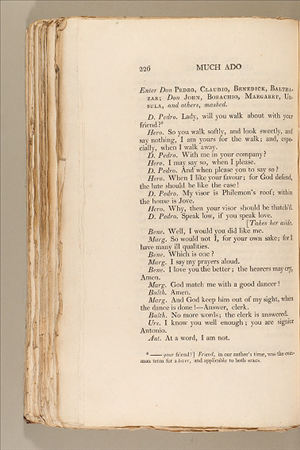 226 MUCH ADO
Enter Don PEDRO, CLAUDIO, BENEDICK, BALTHA-
ZAR; Don JOHN, BORACHIO, MARGARET, UR-
SULA, and others, masked.
D. Pedro. Lady, will you walk about with your
friend?*
Hero. So you walk softly, and look sweetly, and
say nothing, I am yours for the walk; and, espe-
cially, when I walk away.
D. Pedro. With me in your company?
Hero. I may say so, when I please.
D. Pedro. And when please you to say so?
Hero. When I like your favour; for God defend,
the lute should be like the case!
D. Pedro. My visor is Philemon's roof; within
the house is Jove.
Hero. Why, then your visor should be thatch'd.
D. Pedro. Speak low, if you speak love.
[Takes her aside.
Bene. Well, I would you did like me.
Marg. So would not I, for your own sake; for I
have many ill qualities.
Bene. Which is one?
Marg. I say my prayers aloud.
Bene. I love you the better; the hearers may cry,
Amen.
Marg. God match me with a good dancer!
Balth. Amen.
Marg. And God keep him out of my sight, when
the dance is done!—Answer, clerk.
Balth. No more words; the clerk is answered.
Urs. I know you well enough; you are signior
Antonio.
Ant. At a word, I am not.
* —— your friend?] Friend, in our author's time, was the com-
mon term for a lover, and applicable to both sexes.